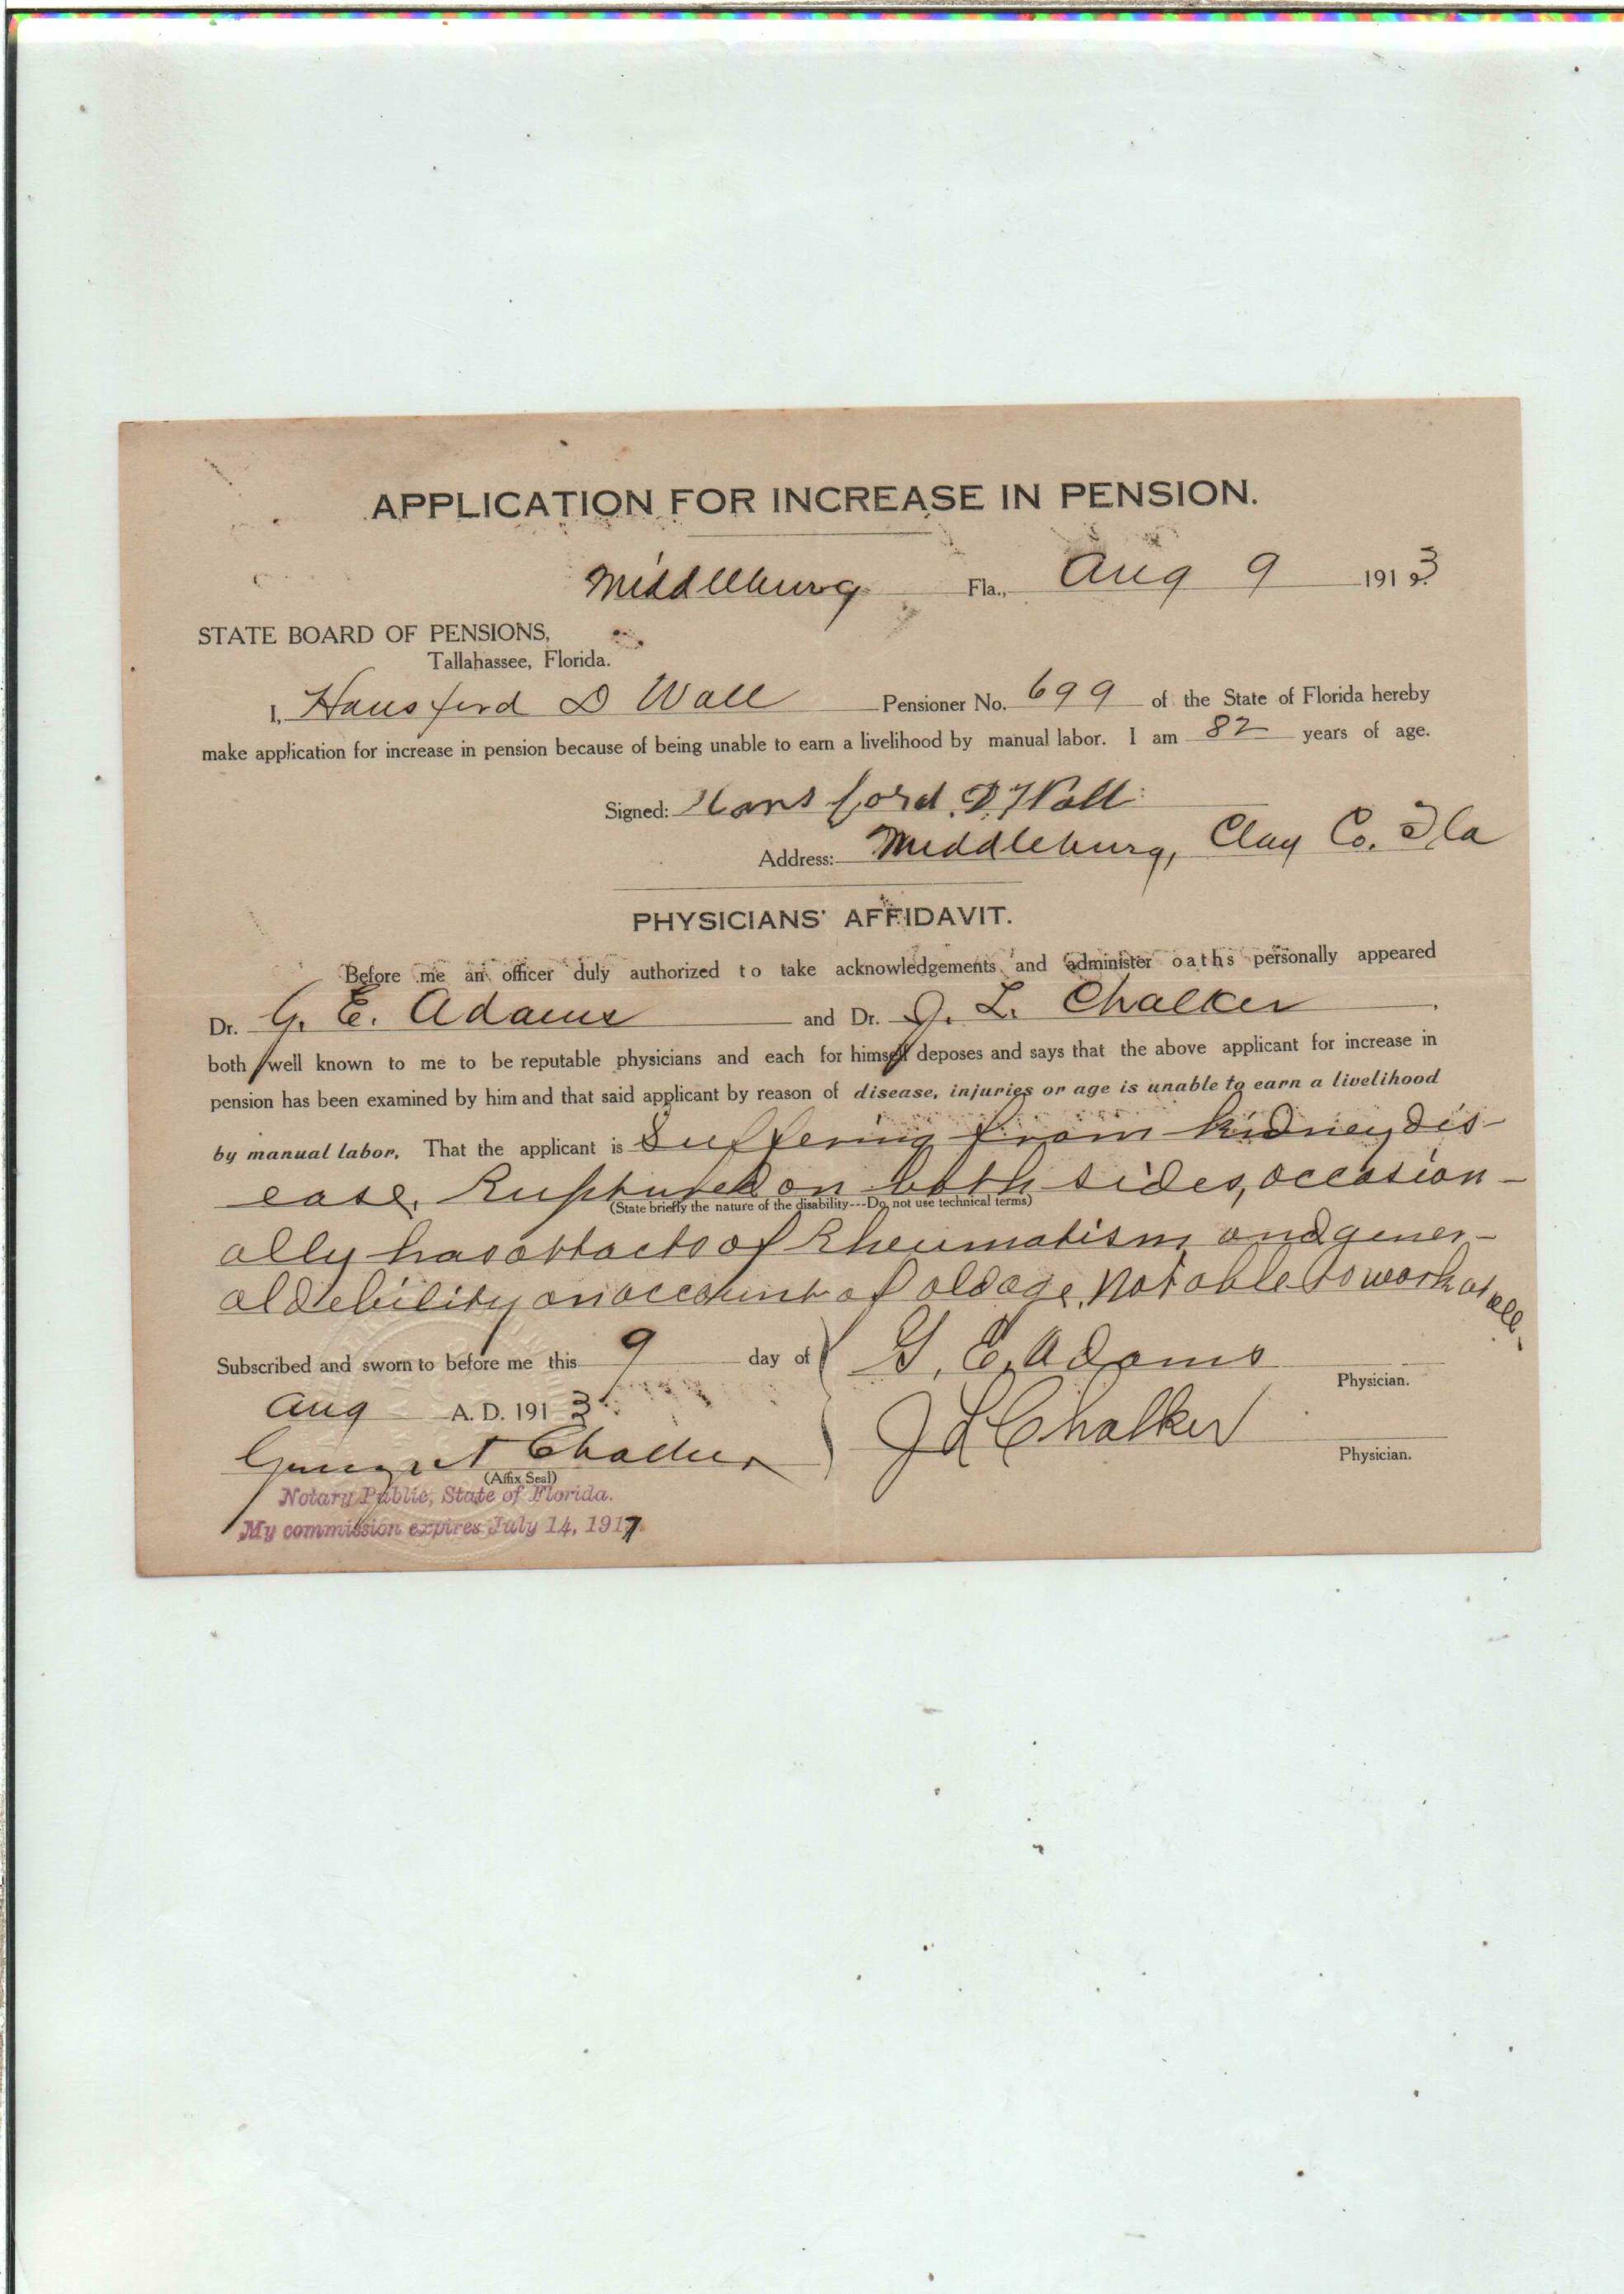 APPLICATION FOR INCREASE IN PENSION.
Middleburg Fla., Aug 9 1913
STATE BOARD OF PENSIONS,
Tallahassee, Florida.
I, Hansford D Wall Pensioner No. 699 of the State of Florida hereby
make application for increase in pension because of being unable to earn a livelihood by manual labor. I am 82 years of age.
Signed: Hansford D. Wall
Address: Middleburg, Clay Co. Fla
PHYSICIANS' AFFIDAVIT.
Before me an officer duly authorized to take acknowledgements and administer oaths personally appeared
Dr. G. E. Adams and Dr. J. L. Chalker
both well known to me to be reputable physicians and each for himself deposes and says that the above applicant for increase in
pension has been examined by him and that said applicant by reason of disease, injuries or age is unable to earn a livelihood
by manual labor. That the applicant is Suffering from kidney dis-
ease. Ruptured on both sides, occasion-
(State briefly the nature of the disability---Do not use technical terms)
ally has attacks of Rheumatism and gener-
al debility on account of old age. Not able to work at all.
Subscribed and sworn to before me this 9 day of G. E. Adams
Physician.
Aug A. D. 1913 J L Chalker
Physician.
Chalker
(Affix Seal)
Notary Public, State of Florida.
My commission expires July 14, 1917